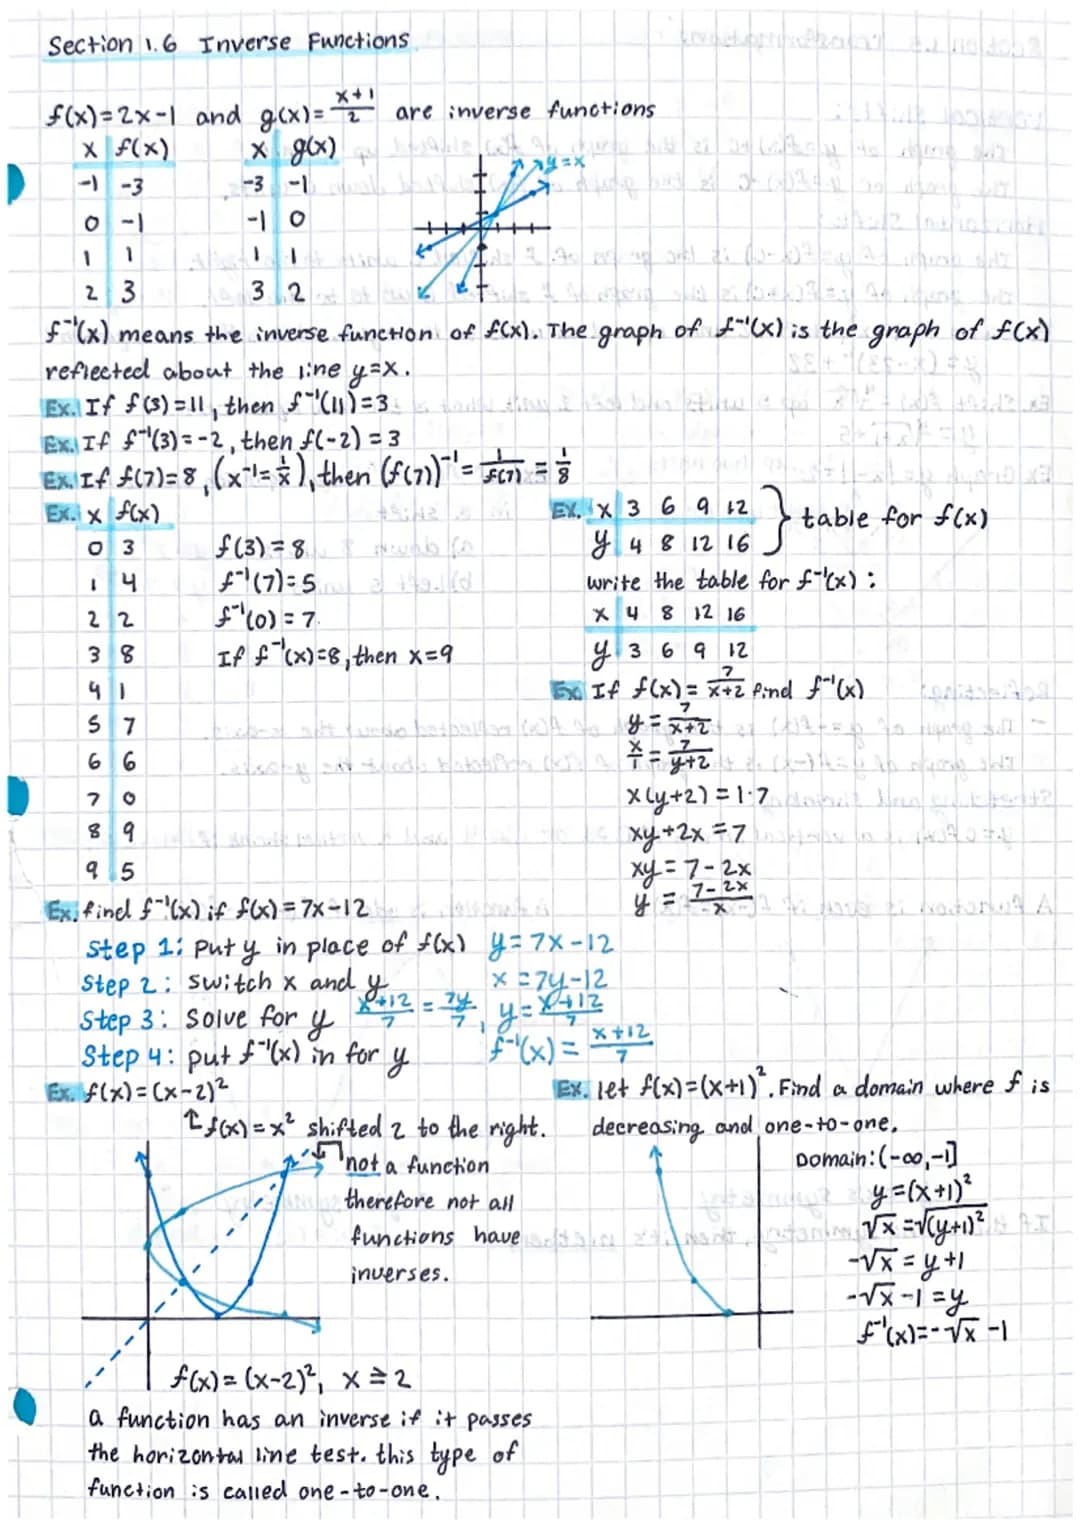 Section 1.6 Inverse Functions
f(x)=2x-1 and g(x)=x+1/2 are inverse functions
x f(x)
-1 -3
0 -1
1 1
2 3
x g(x)
-3 -1
-1 0
1 1
3 2
y=x
f⁻¹(x) means the inverse function of f(x). The graph of f⁻¹(x) is the graph of f(x)
reflected about the line y=x.
Ex. If f(3)=11, then f⁻¹(11)=3
Ex. If f⁻¹(3)=-2, then f(-2)=3
Ex. If f(7)=8, (x⁻¹=1/x), then (f(7))⁻¹=1/f(7)=1/8
Ex. x f(x)
0 3
1 4
2 2
3 8
4 1
5 7
6 6
7 0
8 9
9 5
f(3)=8
f⁻¹(7)=5
f⁻¹(0)=7
If f⁻¹(x)=8, then x=9
Ex. x 3 6 9 12
y 4 8 12 16
} table for f(x)
write the table for f⁻¹(x):
x 4 8 12 16
y 3 6 9 12
Ex. If f(x)=7/x+2 find f⁻¹(x)
y=7/x+2
x/1=7/y+2
x(y+2)=1·7
xy+2x=7
xy=7-2x
y=7-2x/x
Ex. find f⁻¹(x) if f(x)=7x-12
Step 1: Put y in place of f(x) y=7x-12
Step 2: switch x and y x=7y-12
Step 3: Solve for y x+12/7=7y/7, y=x+12/7
Step 4: put f⁻¹(x) in for y f⁻¹(x)=x+12/7
Ex. f(x)=(x-2)²
↑f(x)=x² shifted 2 to the right.
not a function
therefore not all
functions have
inverses.
f(x)=(x-2)², x≥2
a function has an inverse if it passes
the horizontal line test. this type of
function is called one-to-one.
Ex. let f(x)=(x+1)². Find a domain where f is
decreasing and one-to-one.
Domain:(-∞,-1]
y=(x+1)²
√x=√(y+1)²
-√x=y+1
-√x-1=y
f⁻¹(x)=-√x-1